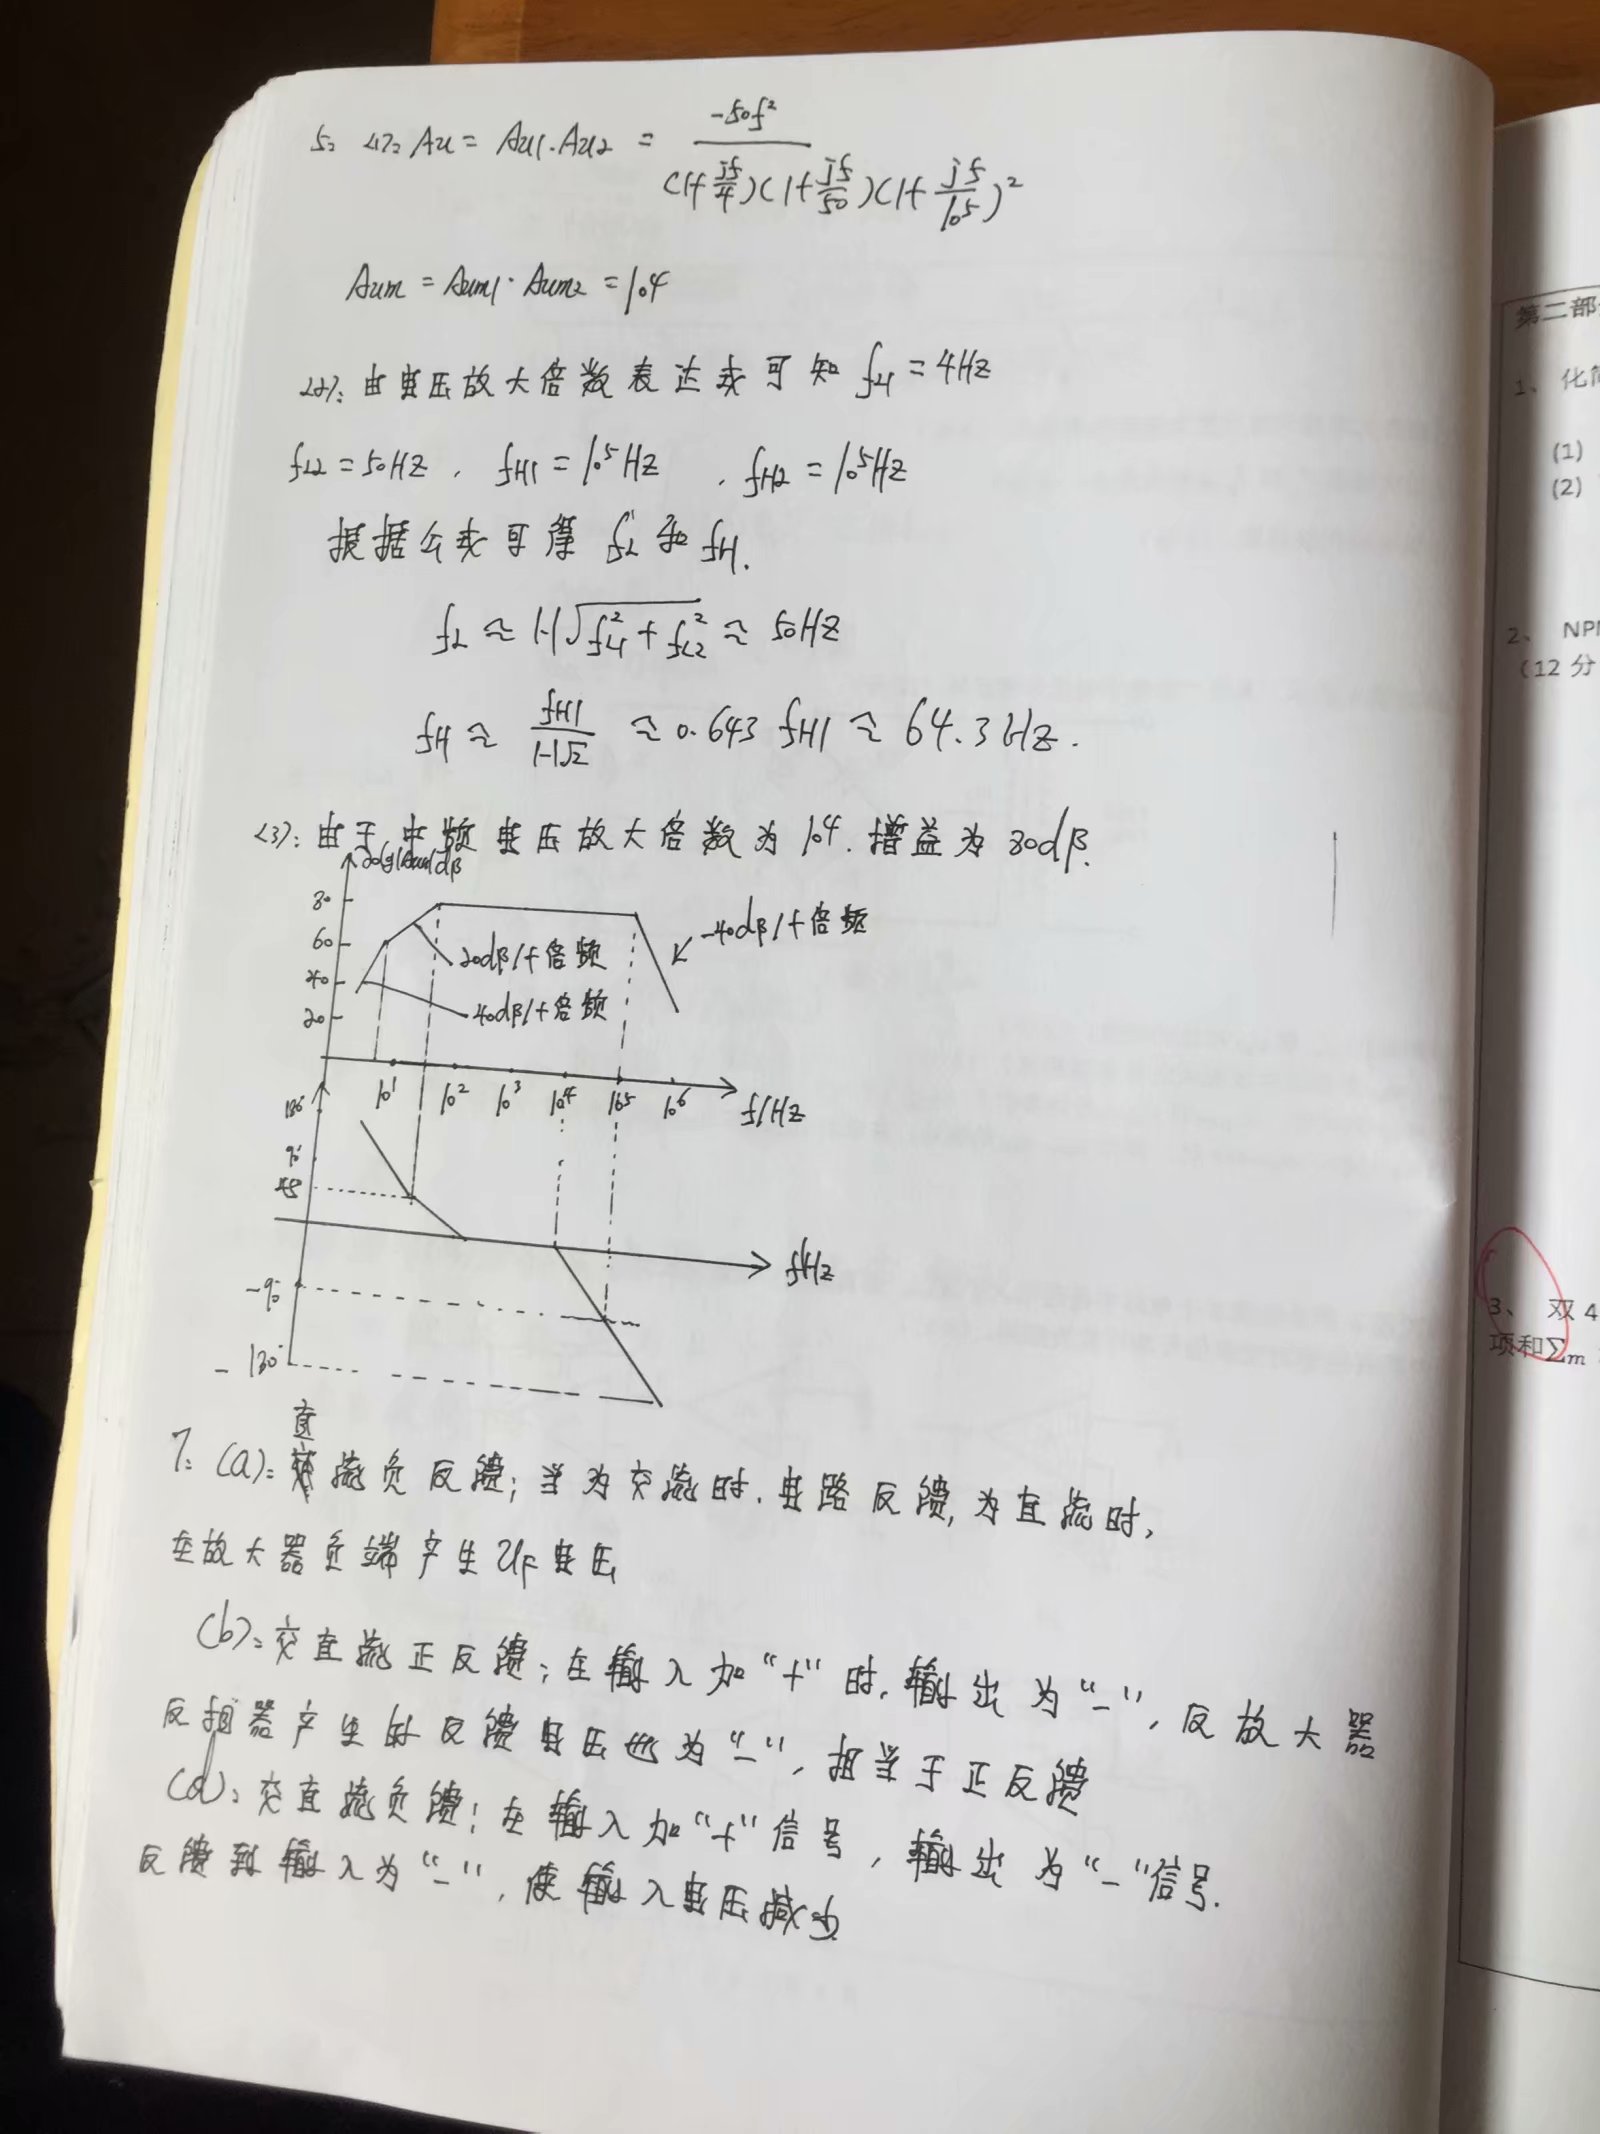 5: <1>: Au = Au1·Au2 = -50f² / (1+jf/4)(1+jf/50)(1+jf/10⁵)²
Aum = Aum1·Aum2 = 10⁴
<2>: 由电压放大倍数表达式可知 fL1 = 4Hz
fL2 = 50Hz , fH1 = 10⁵Hz , fH2 = 10⁵Hz
根据公式可得 fL 和 fH.
fL ≈ 1.1√(fL1² + fL2²) ≈ 50Hz
fH ≈ fH1 / 1.1√2 ≈ 0.643 fH1 ≈ 64.3Hz.
<3>: 由于中频电压放大倍数为 10⁴. 增益为 80dB.
20lg|Aum|/dB
80
60
40
20
20dB/十倍频
40dB/十倍频
-40dB/十倍频
10¹ 10² 10³ 10⁴ 10⁵ 10⁶ f/Hz
180°
90°
45°
f/Hz
-90°
-180°
7: (a): 直流负反馈; 当为交流时. 电路反馈, 为直流时,
在放大器负端产生 UF 电压
(b): 交直流正反馈; 在输入加“+”时, 输出为“-”, 反放大器
反相器产生的反馈电压也为“-”, 相当于正反馈
(d): 交直流负馈; 在输入加“+”信号, 输出为“-”信号.
反馈到输入为“-”, 使输入电压减少
第二部
1、
(1)
(2)
2、 NP
(12 分
3、 双 4
项和∑m